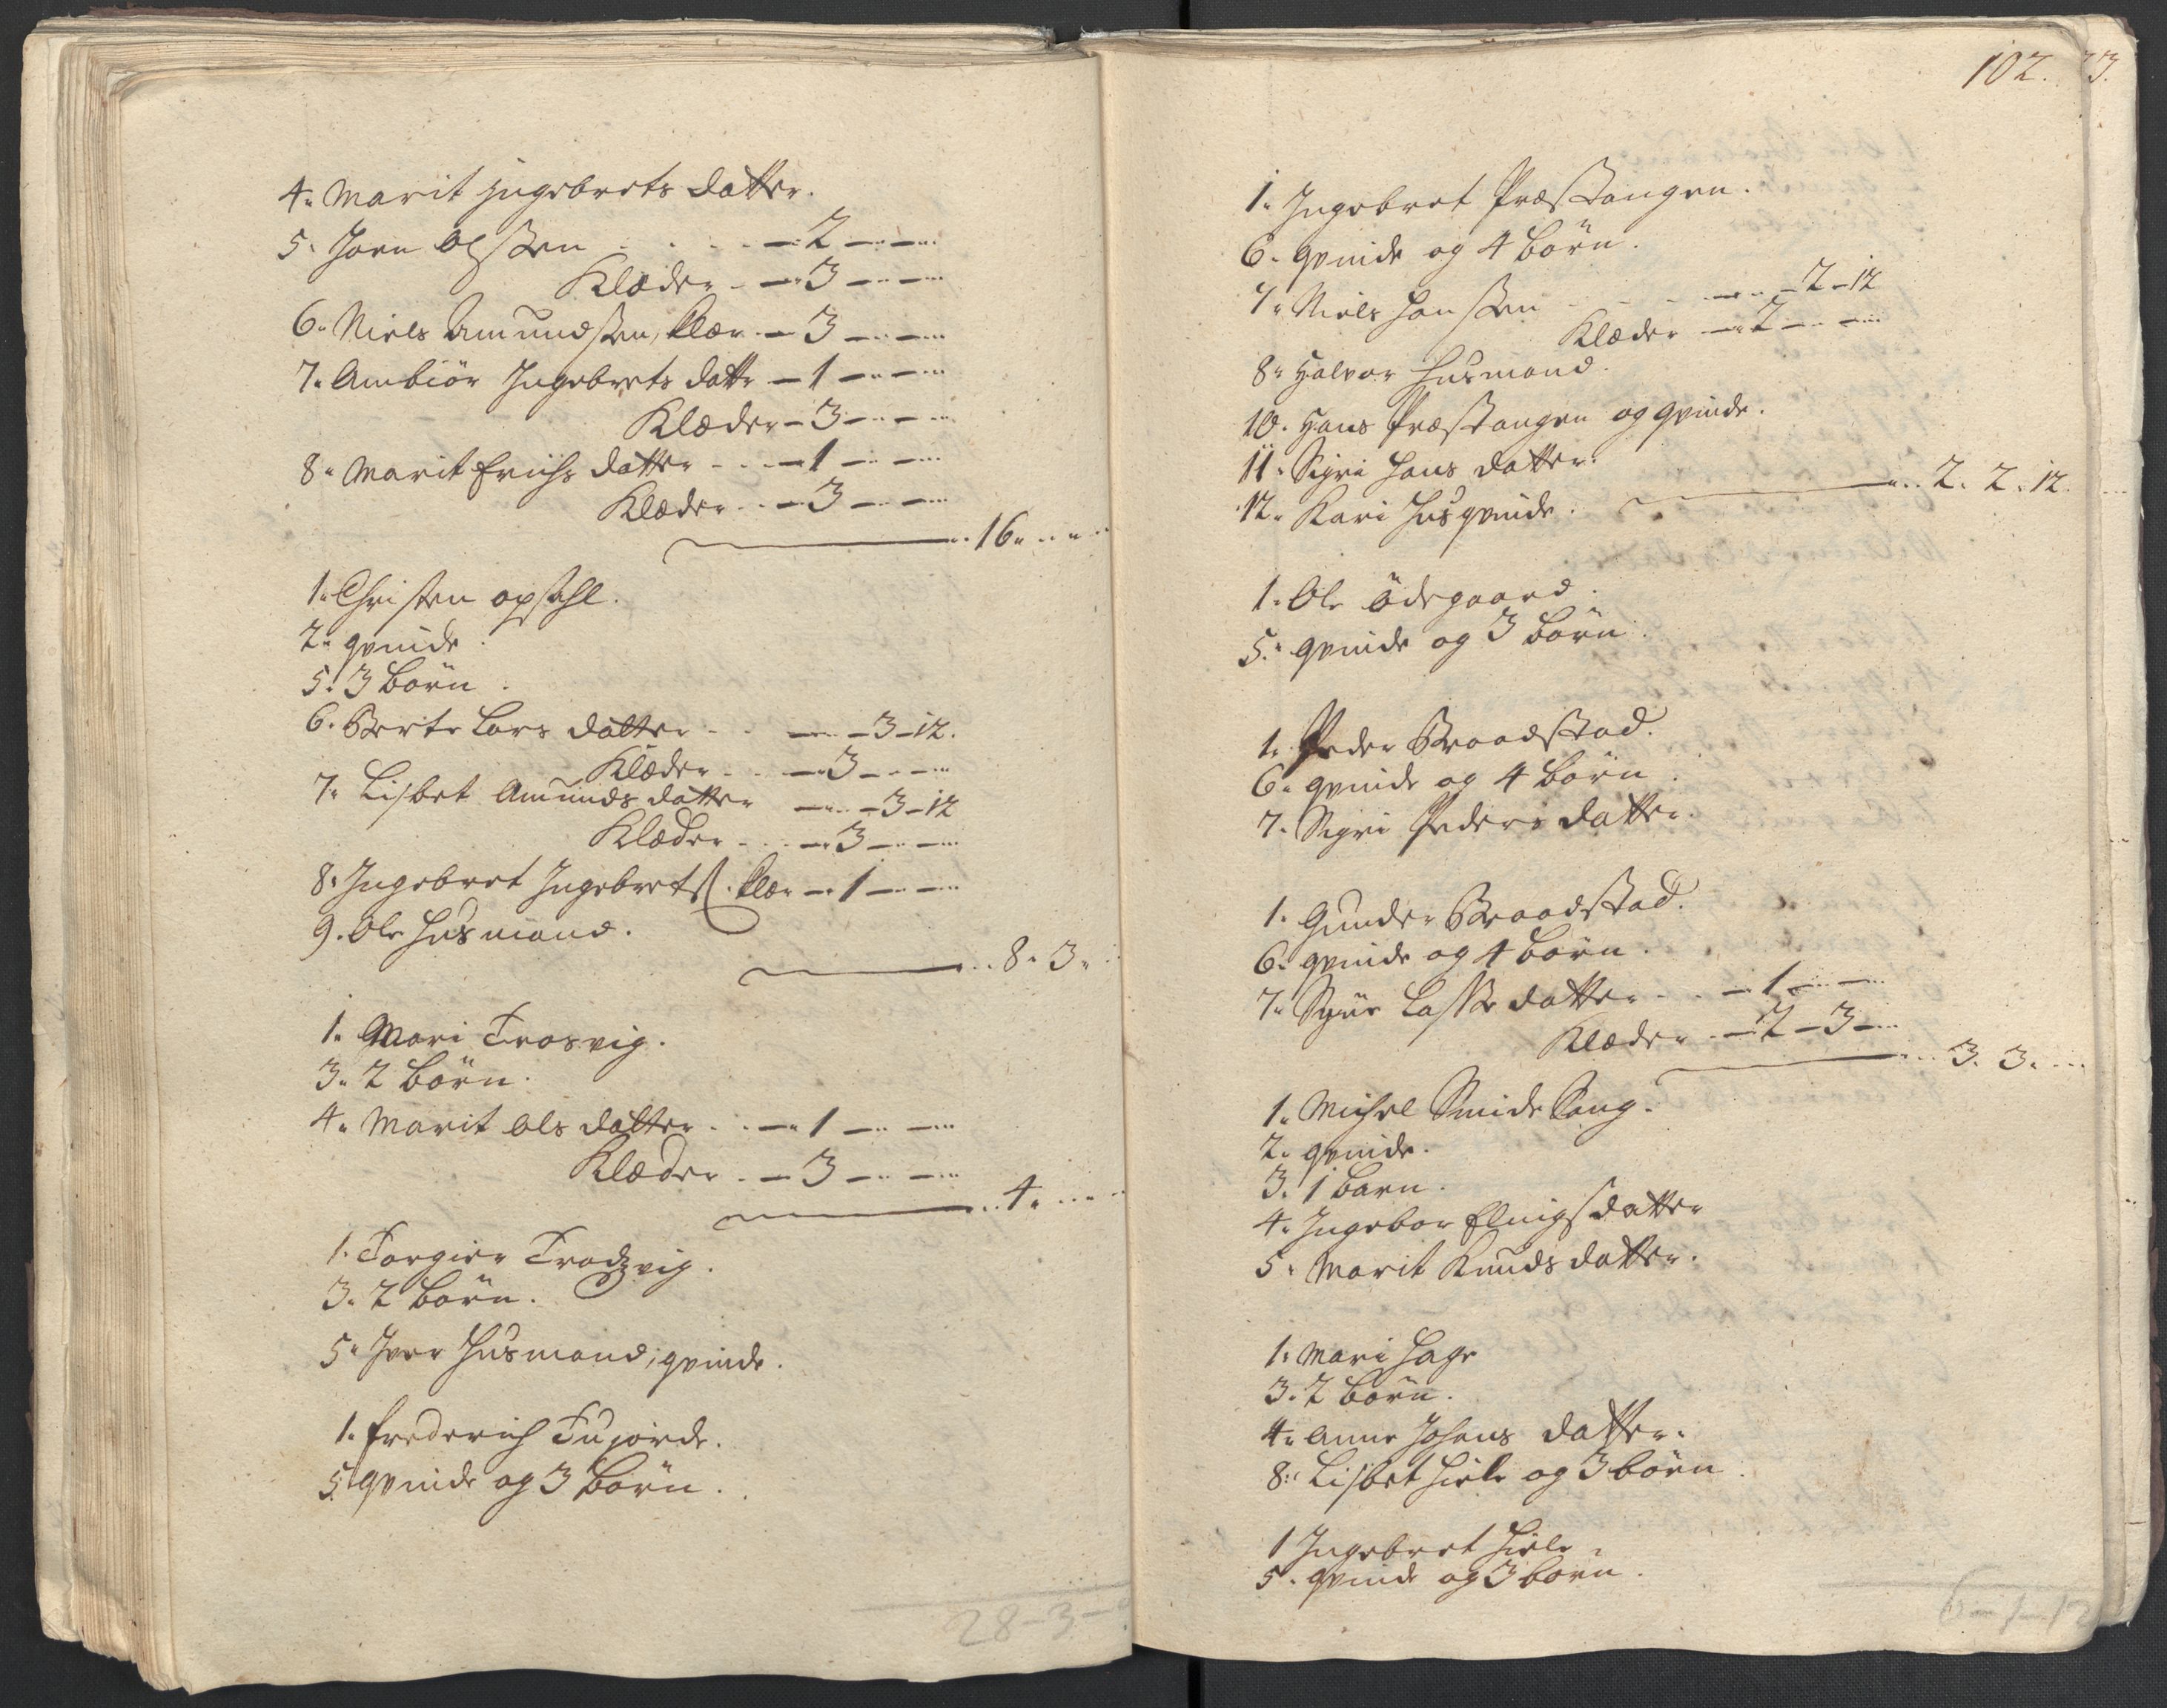 4. Marit Jngebrets datter.
5. Joen Olssen - - - 2 - -
Klæder - 3 - -
6. Niels Amundssen, klær - 3 - -
7. Ambiör Jngebrets datt - 1 - -
Klæder - 3 - -
8. Marit Erichs datter - 1 - -
Klæder - 3 - -
16.
1. Christen opsahl.
2. qvinde.
5. 3 börn.
6. Berte Lars datter - - 3 - 12.
Klæder - - 3 - -
7. Lisbet Amunds datter - - 3 - 12
Klæder - - 3 - -
8. Jngebret Jngebretss. klær - 1 - -
9. Ole Husmand.
8. 3.
1. Mari Trosvig.
3. 2 börn.
4. Marit Ols datter - 1 - -
Klæder - 3 - -
4.
1. Torgier Trodzvig.
3. 2 börn.
5. Jver Husmand, qvinde.
1. Frederich Tujorde.
5. qvinde og 3 börn.
28-3-
102.
73.
1. Jngebret Præstangen.
6. qvinde og 4 börn.
7. Niels Hanssen - - - 2 - 12
Klæder - 2 - -
8. Halvor Husmand.
10. Hans Præstangen og qvinde.
11. Sigri Hans datter.
12. Kari Husqvinde.
2. 2. 12.
1. Ole Ödegaard.
5. qvinde og 3 börn.
1. Peder Braadstad.
6. qvinde og 4 börn.
7. Sigri Peders datter.
1. Gunder Braadstad.
6. qvinde og 4 börn.
7. datter - - 1 - -
Klæder - 2 - 3 -
3. 3.
1. Michel Smidekang.
2. qvinde.
3. 1 barn.
4. Jngebor datter
5. Marit Knuds datter.
1. Mari Hage
3. 2 börn.
4. Anne Johans datter.
8. Lisbet Hiele og 3 börn.
1 Jngebret Hiele.
5. qvinde og 3 börn.